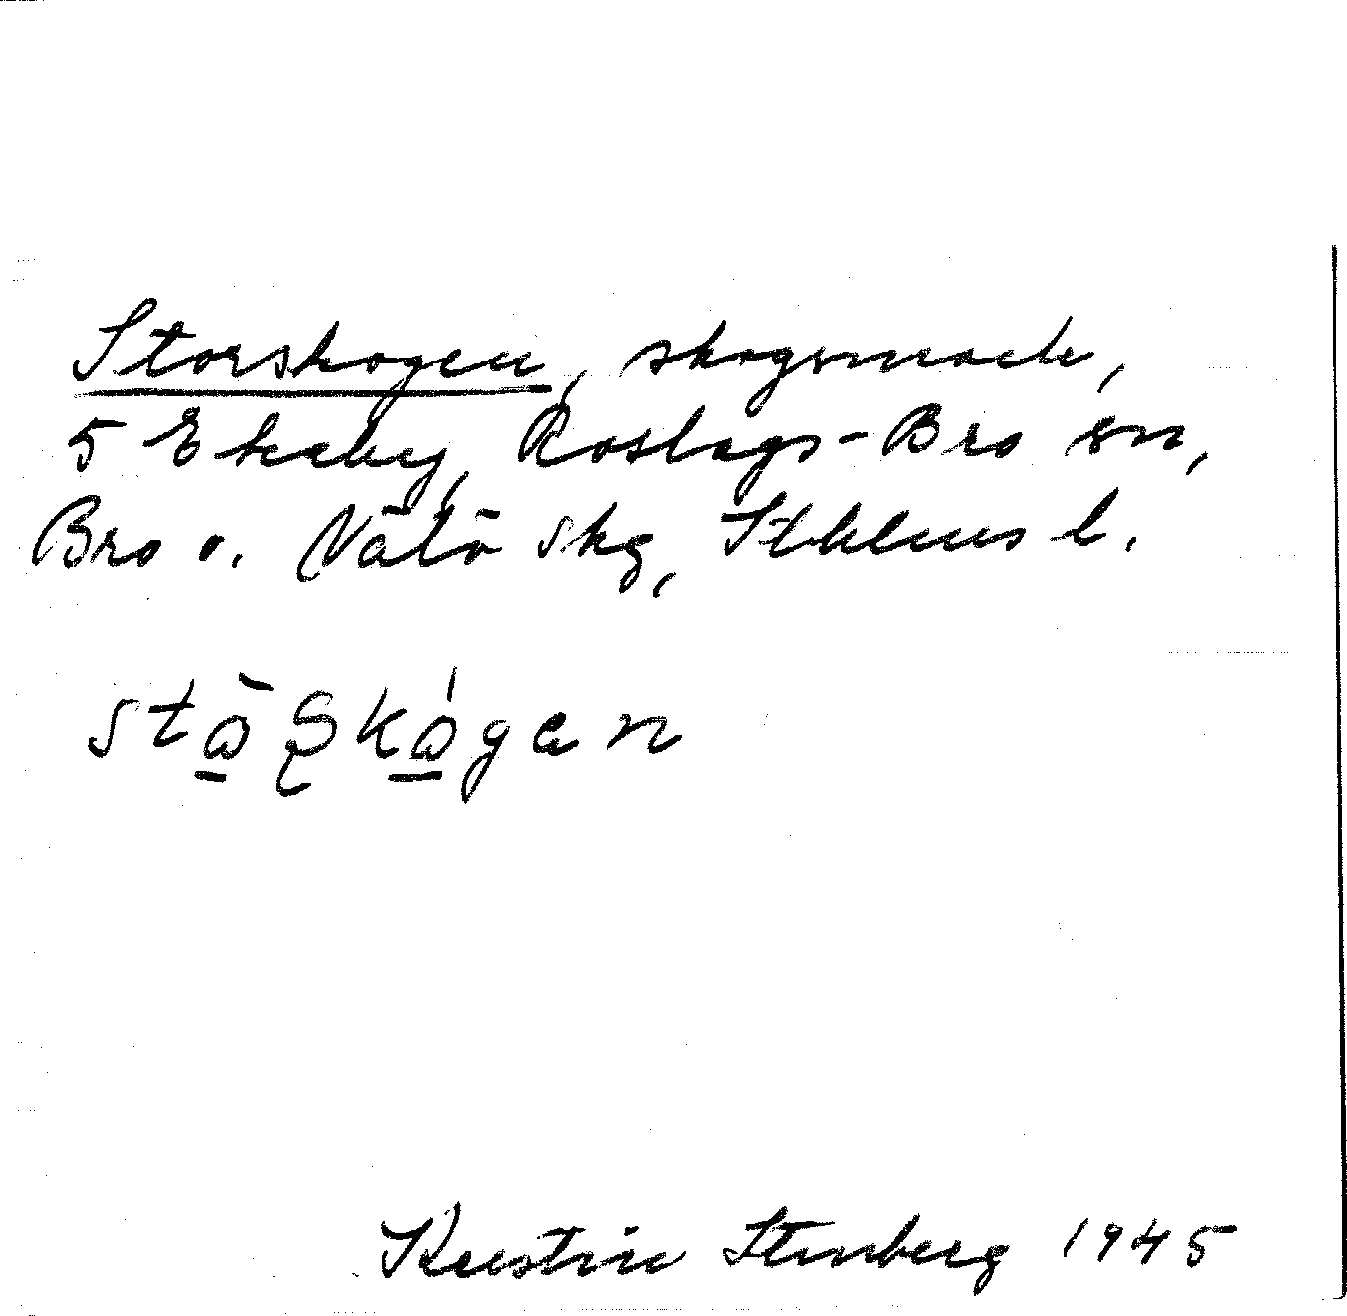 Storskogen, skogsmark,
5 Ekeby, Roslags-Bro sn,
Bro o. Vätö skg, Sthlms l.
Kerstin Stenberg 1945